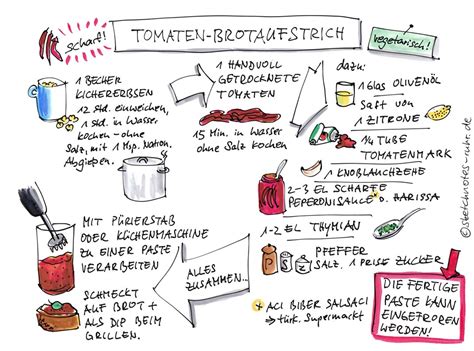 scharf!
TOMATEN-BROTAUFSTRICH
vegetarisch!
1 BECHER
KICHERERBSEN
12 Std. einweichen,
1 Std. in Wasser
kochen - ohne
Salz, mit 1 Msp. Natron.
Abgießen.
1 HANDVOLL
GETROCKNETE
TOMATEN
15 Min. in Wasser
ohne Salz kochen
dazu:
1 Glas OLIVENÖL
Saft von
1 ZITRONE
1/4 TUBE
TOMATENMARK
1 KNOBLAUCHZEHE
2-3 EL SCHARFE
PEPERONISAUCE * o. HARISSA
1-2 EL THYMIAN
PFEFFER
SALZ. 1 PRISE ZUCKER
* ACI BIBER SALSASI
→ türk. Supermarkt
ALLES
ZUSAMMEN...
MIT PÜRIERSTAB
ODER KÜCHENMASCHINE
ZU EINER PASTE
VERARBEITEN
SCHMECKT
AUF BROT +
ALS DIP BEIM
GRILLEN.
DIE FERTIGE
PASTE KANN
EINGEFROREN
WERDEN!
©sketchnotes-ruhr.de